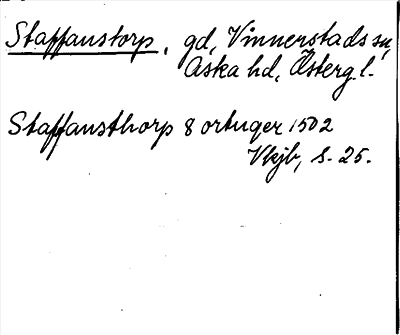 Staffanstorp, gd, Vinnerstads sn,
Aska hd, Östergl.
Staffansthorp 8 ortuger 1502
Vkjb, s. 25.